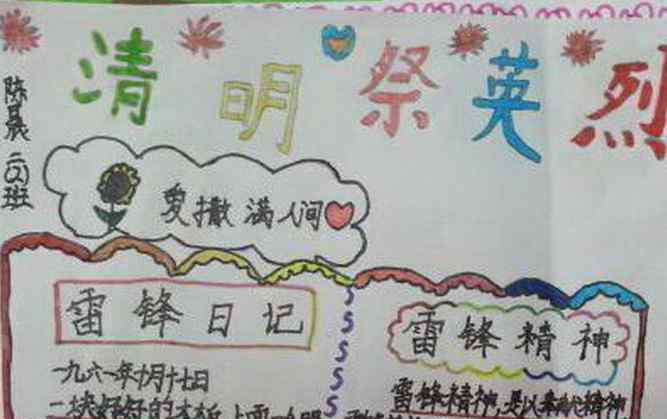 清明祭英烈
陈晨 二(2)班
爱撒满人间
雷锋日记
雷锋精神
一九六一年十月十七日
一块好好的木板,上面一
雷锋精神,是以
精神